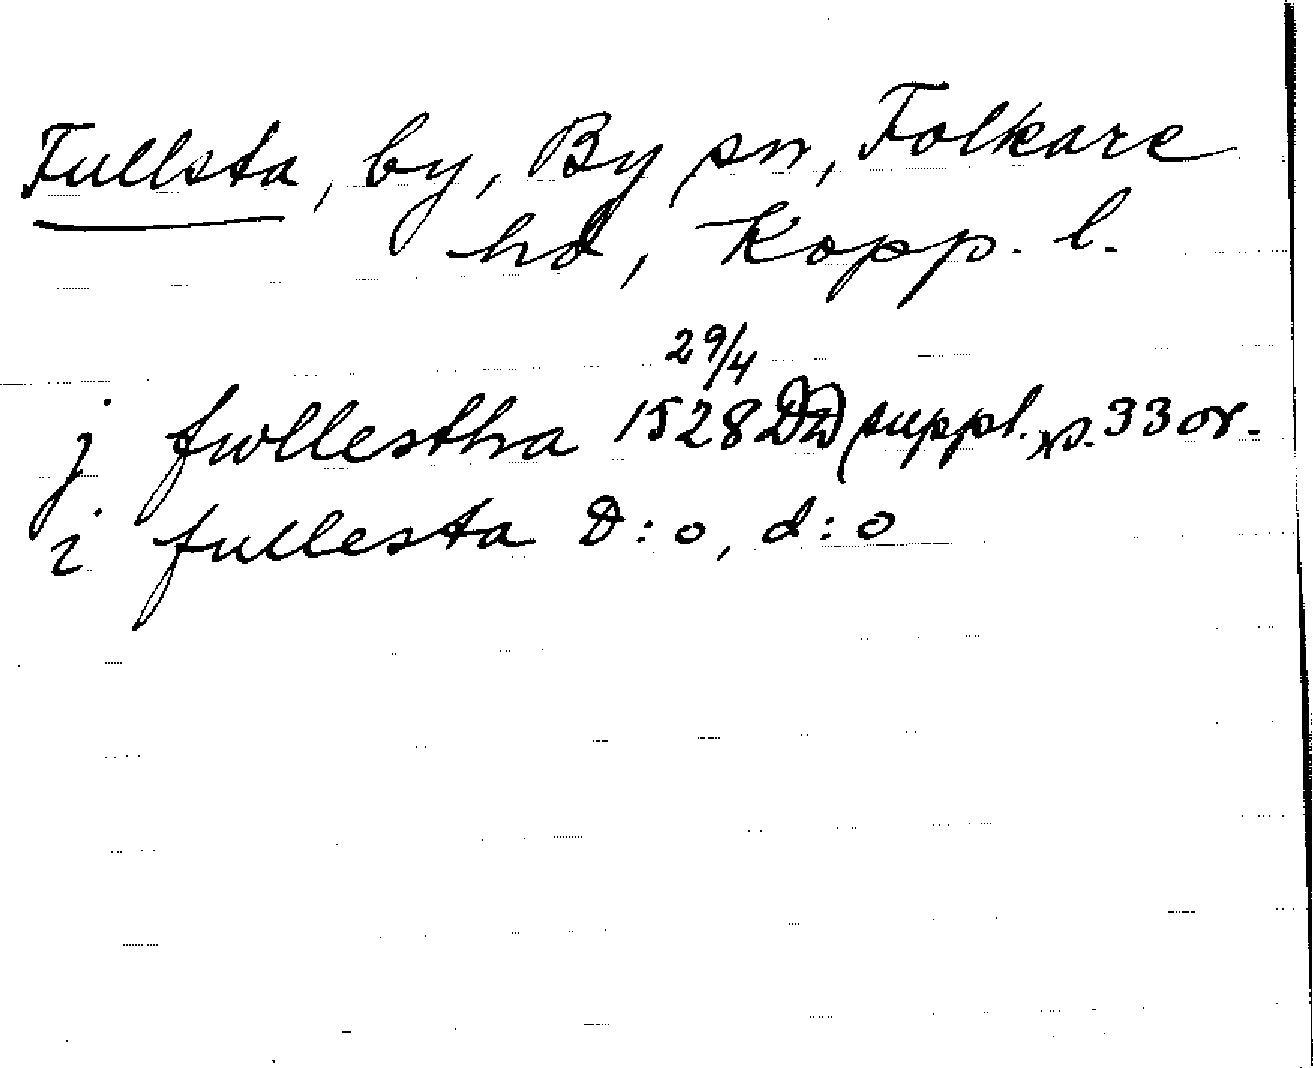 Fullsta, by, By sn, Folkare
hd, Kopp. l.
29/4
j fwllestha 1528 DD suppl. s. 33 or.
i fullesta D:o, d:o